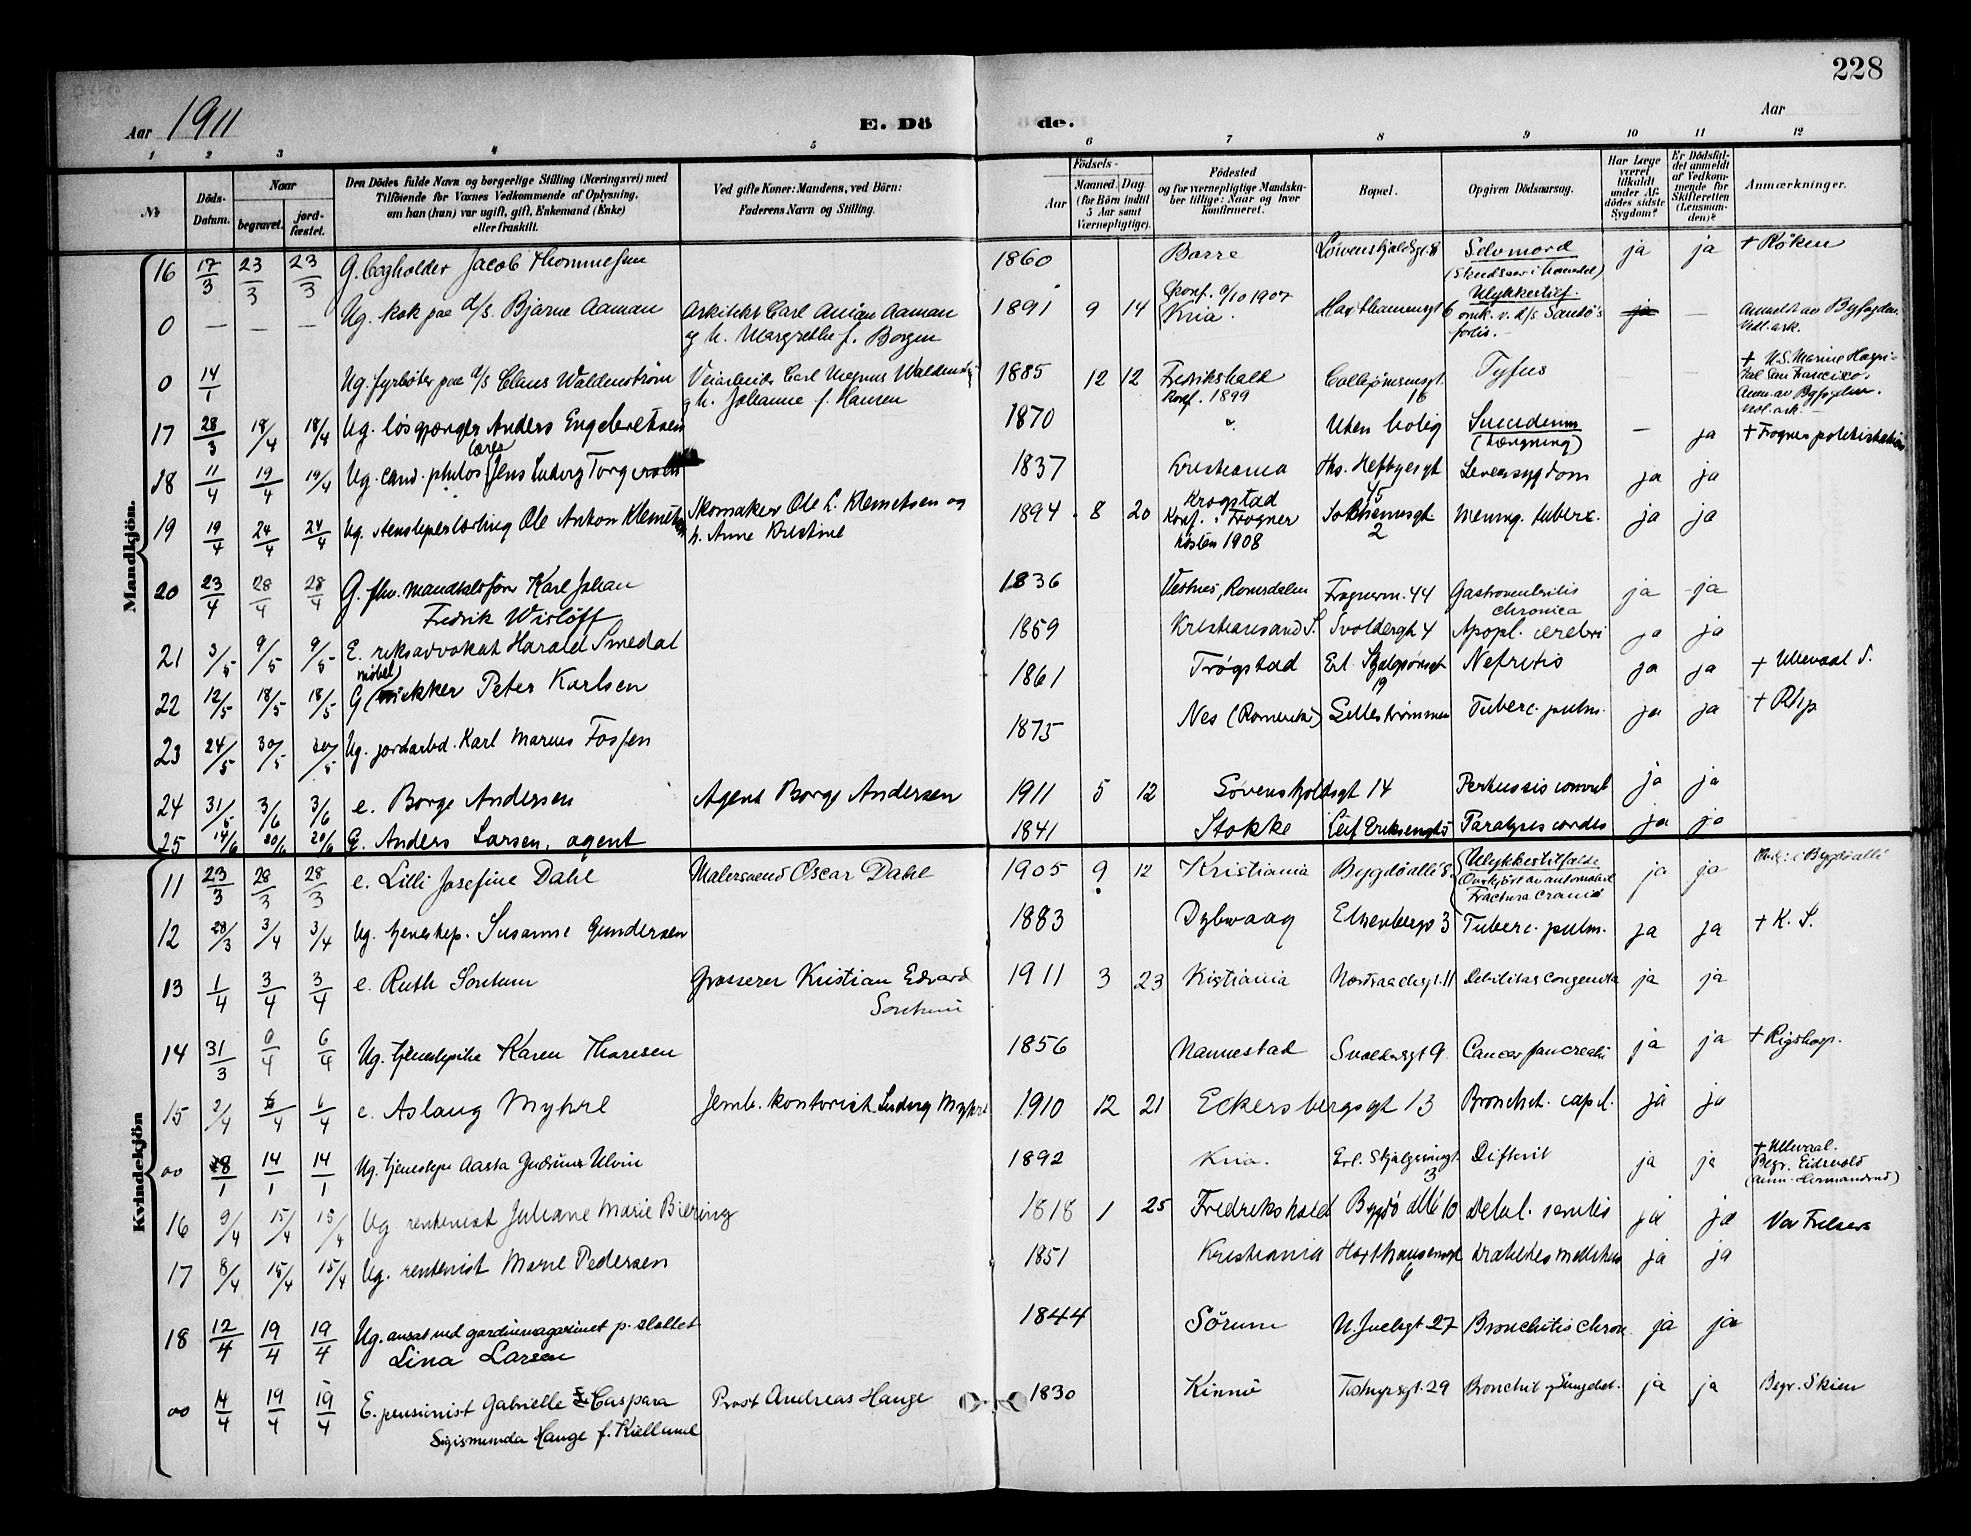 228
Aar 1911
E. Döde.
Aar
1 2 3 4 5 6 7 8 9 10 11 12
№
Döds-Datum.
Naar
begravet.
jord-fæstet.
Den Dödes fulde Navn og borgerlige Stilling (Næringsvei) med
Tilföiende for Voxnes Vedkommende af Oplysning,
om han (hun) var ugift, gift, Enkemand (Enke)
eller fraskilt.
Ved gifte Koner: Mandens, ved Börn:
Faderens Navn og Stilling.
Födsels-
Aar
Maaned. Dag.
(for Börn indtil
5 Aar samt
Værnepligtige).
Födested
og for værnepligtige Mandska-
ber tillige: Naar og hvor
konfirmeret.
Bopæl.
Opgiven Dödsaarsag.
Har Læge
været
tilkaldt
under Af-
dödes sidste
Sygdom?
Er Dödsfal-
det anmeldt
af Vedkom-
mende for
Skifteretten
(Lensman-
den)?
Anmærkninger.
Mandkjön.
16 17/3 23/3 23/3 G. bogholder Jacob Thommesen 1860 Borre Løvenskjoldsgt. 8 Selvmord ja ja + Røken
(Skudsaar i hovedet)
0 — — — Ug. kok paa d/s. Bjarne Aaman Arkitekt Carl Anian Aaman 1891 9 14 Konf. 6/10 1907 Haxthausensgt 6 Ulykkestilf. ja — Anmeldt av Byfogden.
og h. Margrethe f. Borgen Kria. omk. v. d/s Sandö's forlis. Vedl. ark.
0 14/1 Ug. fyrbøter paa d/s Claus Waldenstrøm Veiarbeider Carl Magnus Waldenst. 1885 12 12 Fredrikshald Colbjørnsensgt. 16 Tyfus — — + U.S. Marine Hospi-
og h. Johanne f. Hansen Konf. 1899 tal San Francisco.
Anm. av Byfogden.
Vedl. ark.
17 28/3 18/4 18/4 Ug. løsgjænger Anders Engebretsen 1870 Uten bolig Suicidium — ja + Frogner politistation
(hængning)
18 11/4 19/4 19/4 Ug. cand. philos. lærer Jens Ludvig Torgersen 1837 Kristiania Ths. Heftyesgt 45 Leversygdom ja ja
19 19/4 24/4 24/4 Ug. stensliperlærling Ole Anton Klemetsen Skomaker Ole L. Klemetsen og 1894 8 20 Krogstad 2 Mening. tuberc. ja ja
h. Anne Kristine Konf. i Frogner
høsten 1908
20 23/4 28/4 28/4 G. fhv. Karl Johan 1836 Vestnes, Romsdalen Frognerv. 44 Gastroenteritis ja ja
Fredrik Wisløff chronica
21 3/5 9/5 9/5 E. riksadvokat Harald Smedal 1859 Kristiansand S. Svoldergt 4 Apopl. cerebri ja ja
22 12/5 18/5 18/5 G (møbel)snekker Peter Karlsen 1861 Trøgstad Erl. Skjalgsønsgt 19 Nefritis ja ja + Ullevaal S.
23 24/5 30/5 30/5 Ug. jordarbd. Karl Marius Fossen 1875 Nes (Romerike) Lillestrømmen Tuberc. pulm. ja ja + Rhsp
24 31/5 3/6 3/6 e. Borge Andersen Agent Borge Andersen 1911 5 12 Løvenskjoldsgt 14 Pertussis convul ja ja
25 14/6 20/6 20/6 G. Anders Larsen, agent 1841 Stokke Leif Eriksensgt 5 Paralysis cordis ja ja
Kvindekjön
11 23/3 28/3 28/3 e. Lilli Josefine Dahl Malersvend Oscar Dahl 1905 9 12 Kristiania Bygdöallé 8 Ulykkestilfælde ja ja i Bygdöallé
Overkjört av automobil
Fractura cranii
12 28/3 3/4 3/4 Ug. tjenestep. Susanne Gundersen 1883 Dybwaag 3 Tuberc. pulm. ja ja + K. S.
13 1/4 3/4 3/4 e. Ruth Sontum Grosserer Kristian Edvard 1911 3 23 Kistiania Nordraachsgt. 11 Debilitas congenita ja ja
Sontum
14 31/3 6/4 6/4 Ug. tjenestepike Karen Thoresen 1856 Nannestad Svoldersgt 9. Cancer pancreatis ja ja + Rigshosp.
15 2/4 6/4 6/4 e. Aslaug Myhre Jernb. kontorist Ludvig Myhre 1910 12 21 Eckersbergsgt 13 Bronchit. capil. ja ja
00 8/1 14/1 14/1 Ug. tjenestepi Aasta Gudrun Ulvin 1892 Kria. Erl. Skjalgssønsgt. 3 Difterit ja ja + Ullevaal.
Begr. Eidsvold
16 9/4 15/4 15/4 Ug rentenist Juliane Marie Biering 1818 1 25 Fredrikshald Bygdö allé 10 Debil. senilis ja ja Vor Frelsers
17 8/4 15/4 15/4 Ug. rentenist Marie Pedersen 1851 Kristiania Haxthausensgt 6 Diabetes mellitus ja ja
18 12/4 19/4 19/4 Ug. ansat ved gardinmagasinet p. slottet 1844 Sörum N. Juelsgt 27 Bronchitis chron. ja ja
Lina Larsen
00 14/4 19/4 19/4 E. pensionist Gabrielle Caspara Prost Andreas Hauge 1830 Kinn Tidemandsgt. 29 Bronchit ja ja Begr. Skien
Sigismunda Hauge f. Kielland